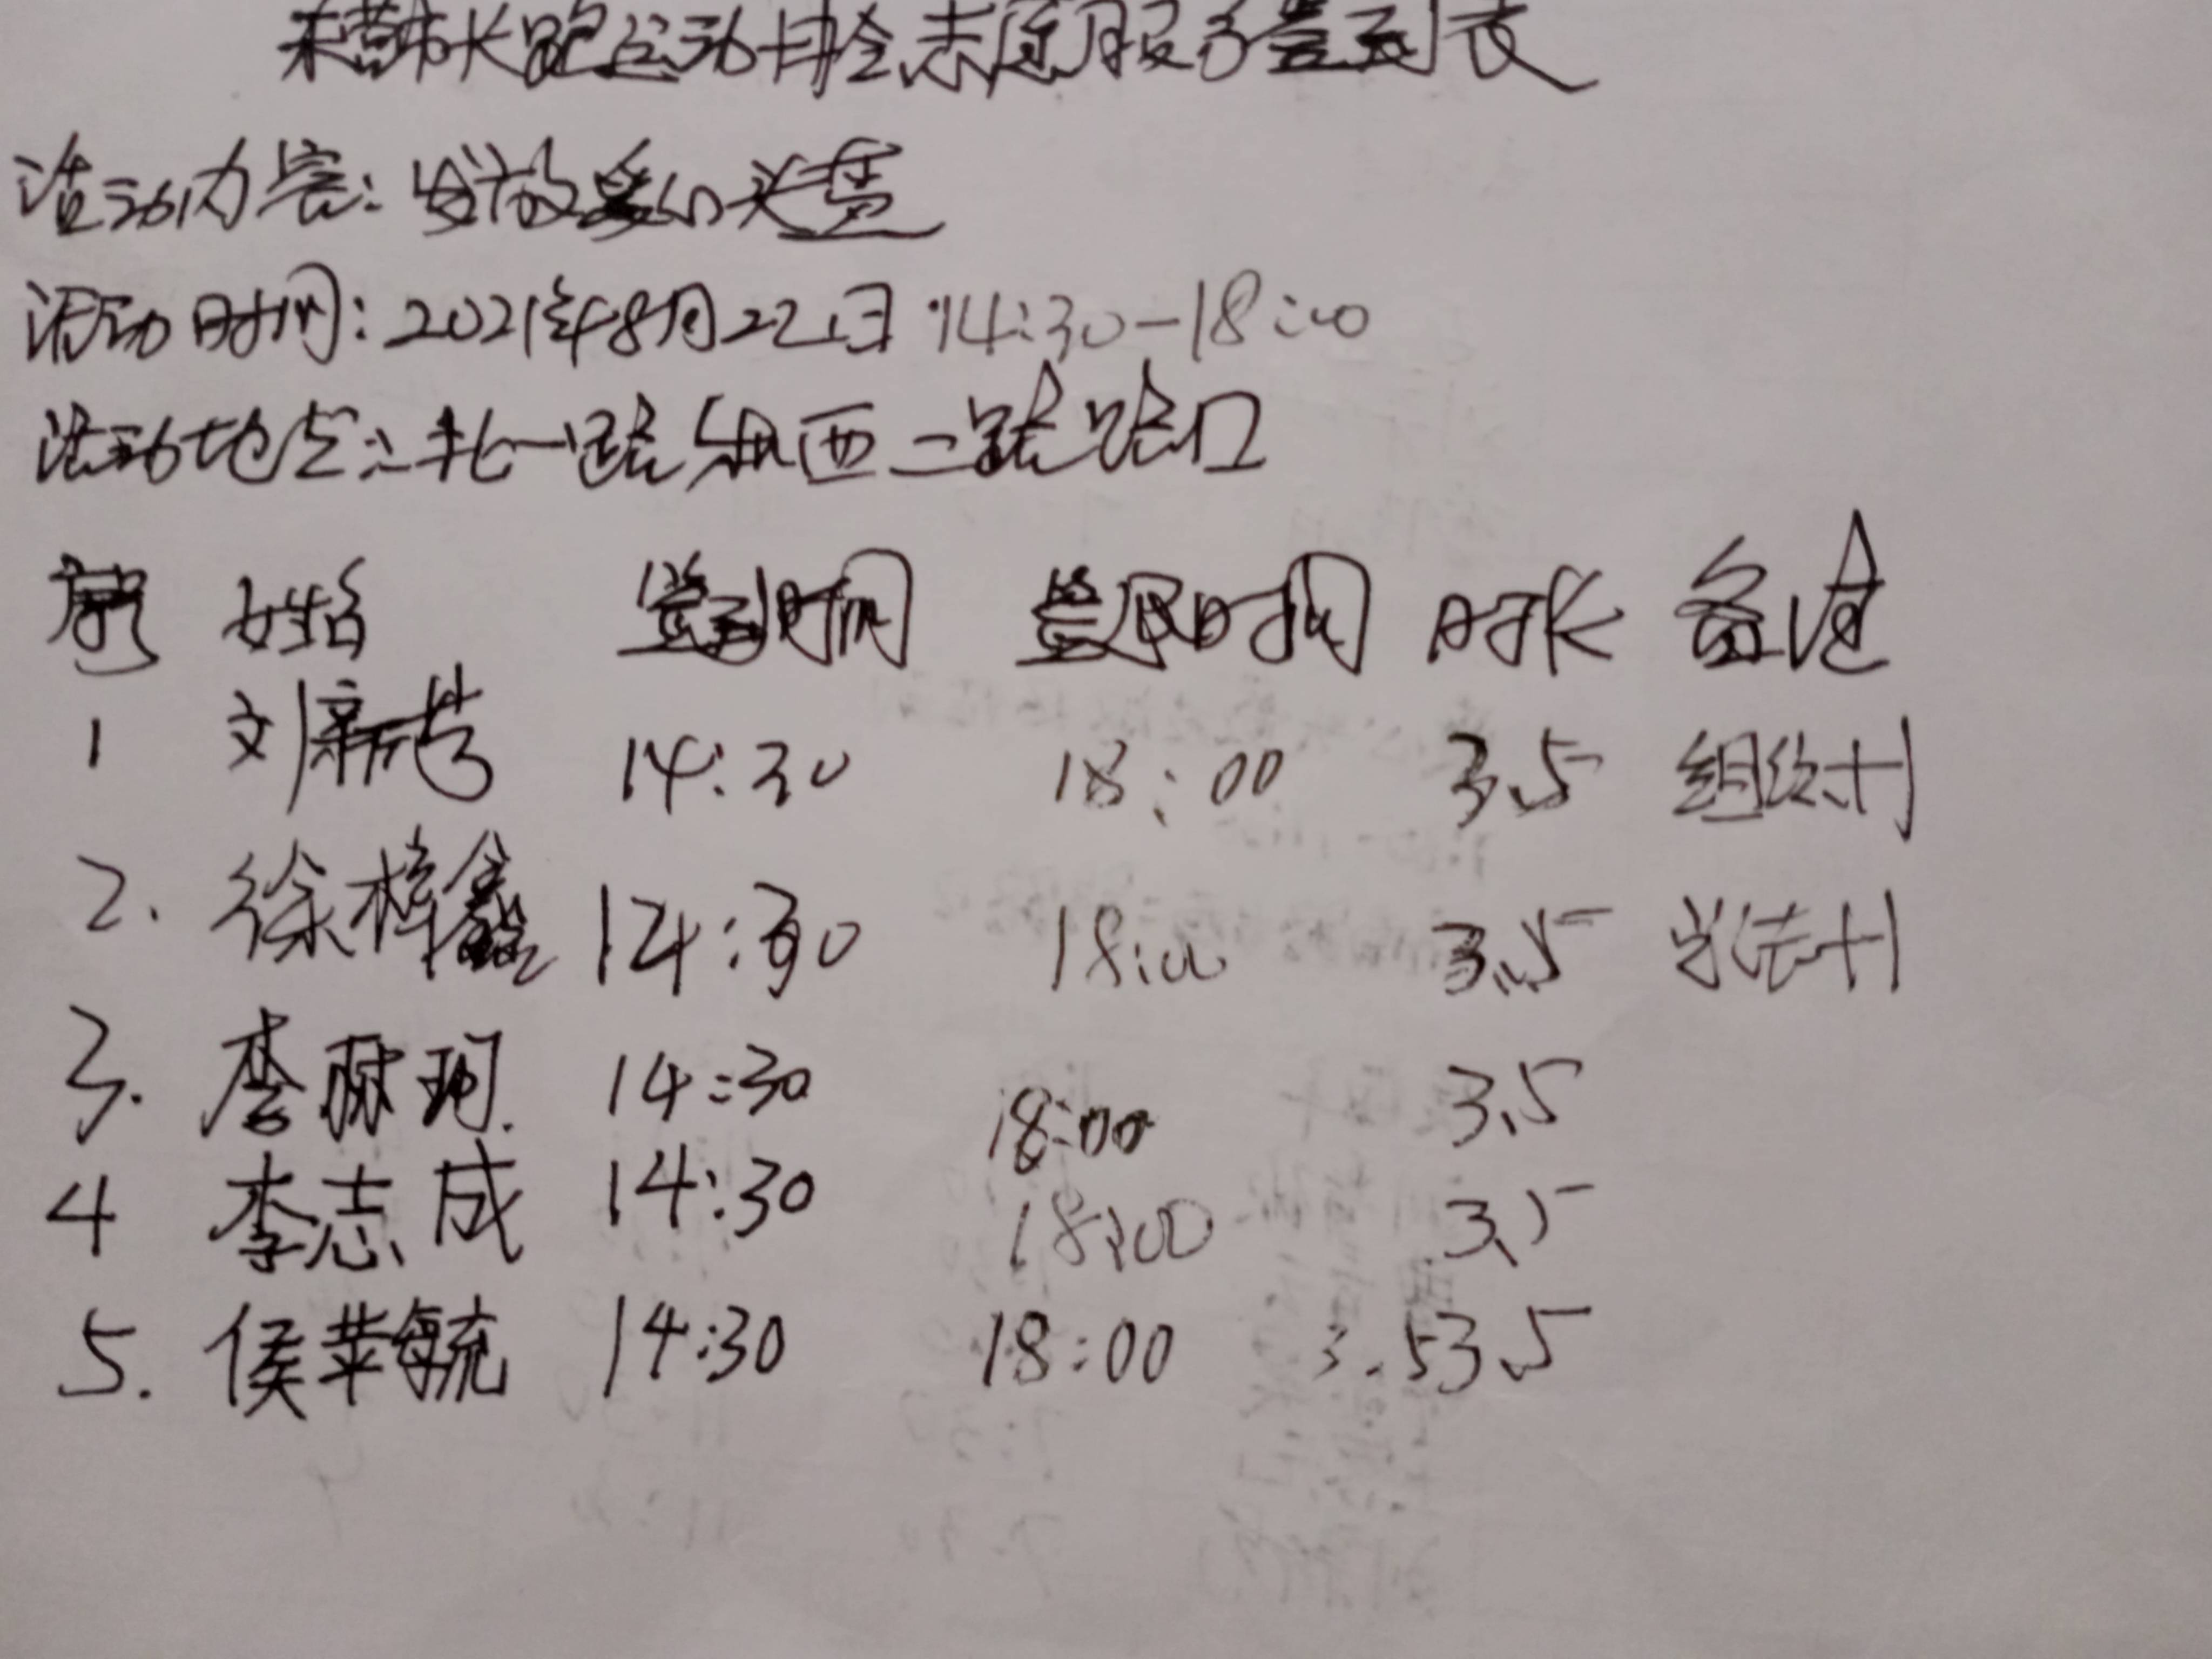 长跑运动协会志愿服务签到表
活动内容：发放爱心义卖
活动时间：2021年8月22日 14:30-18:00
活动地点：北一路和西二路路口
序号 姓名 签到时间 签退时间 时长 备注
1 刘新芳 14:30 18:00 3.5 组织+1
2. 徐梓鑫 14:30 18:00 3.5 +1
3. 李 珂. 14:30 18:00 3.5
4 李志成 14:30 18:00 3.5
5. 侯苹毓 14:30 18:00 3.5 3.5